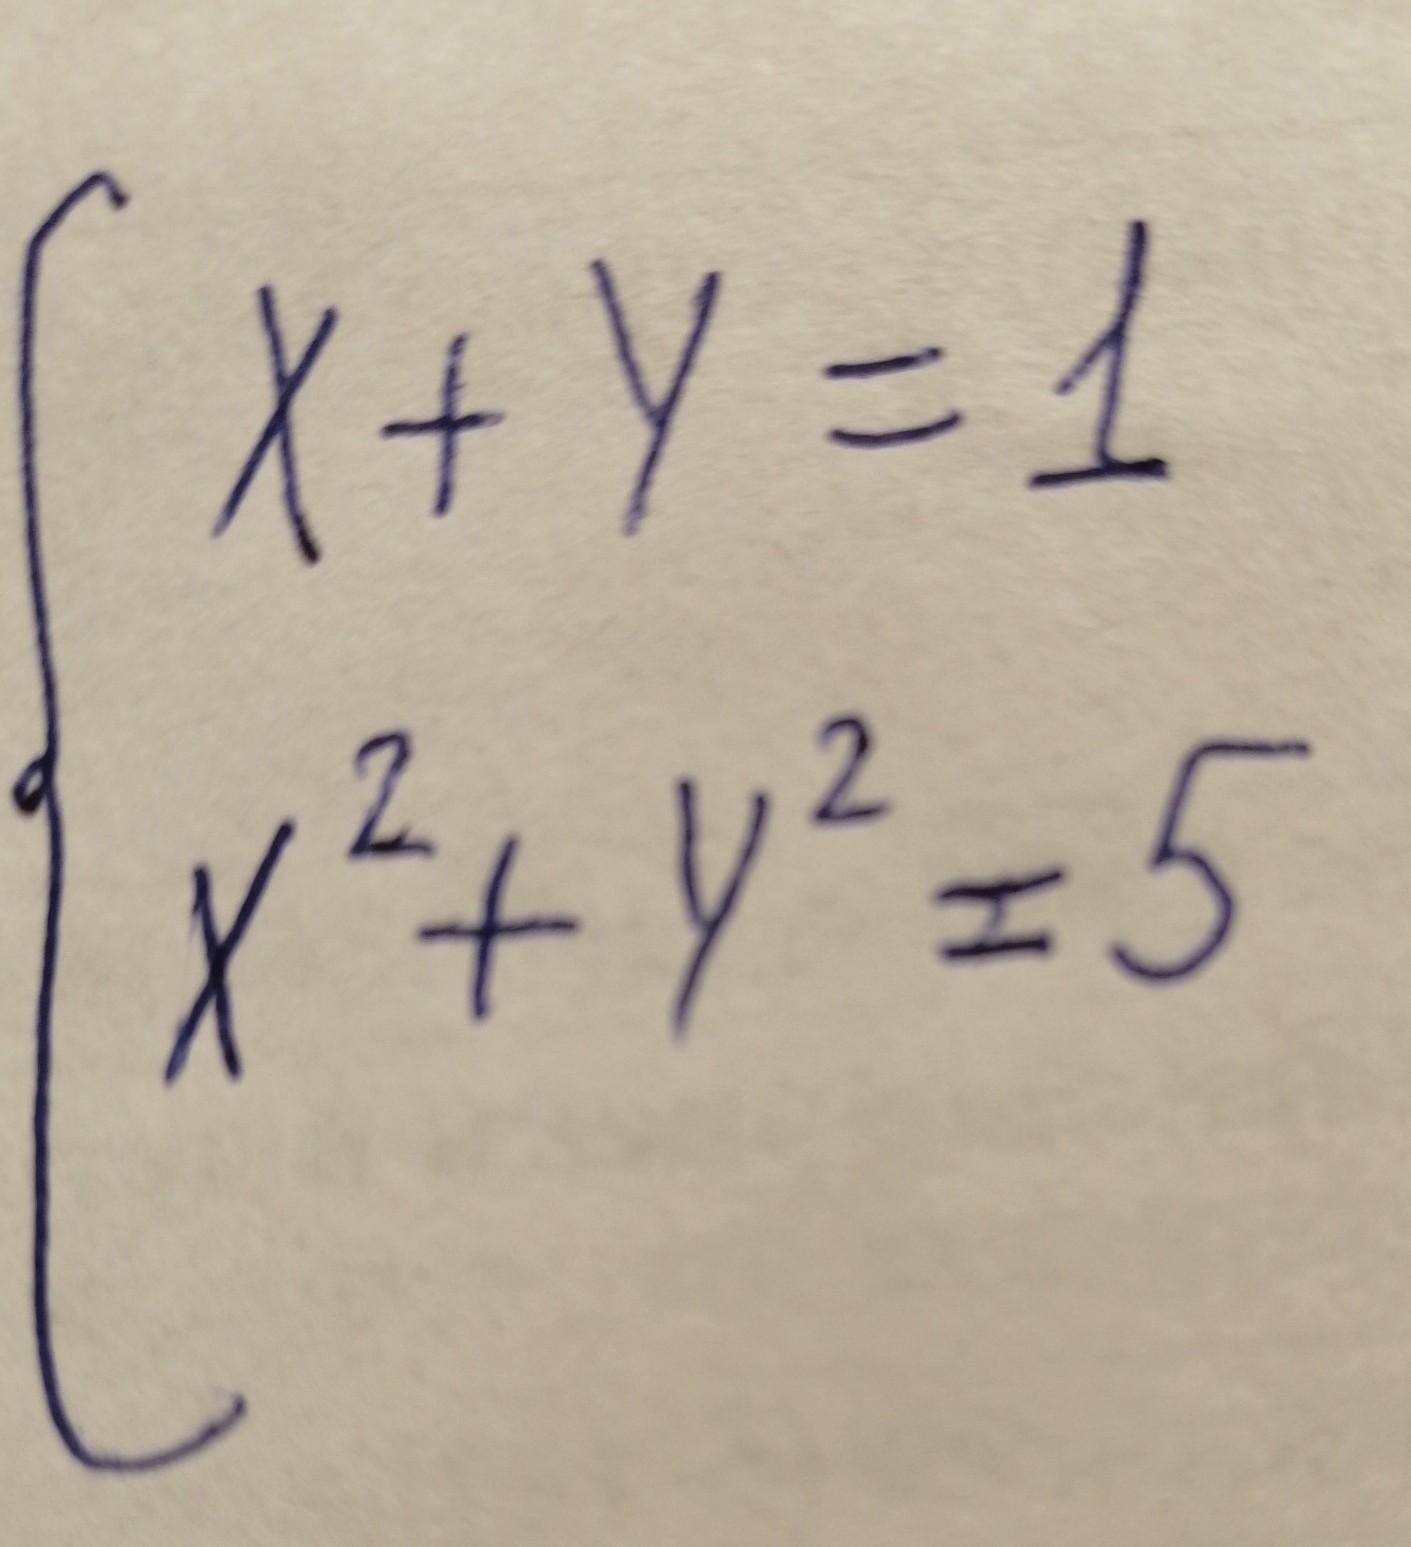 x + y = 1
x² + y² = 5